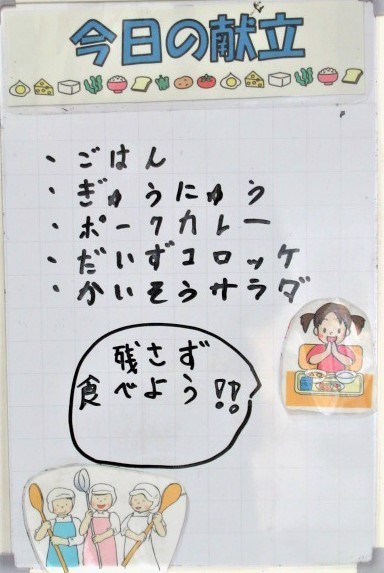 今日の献立
・ごはん
・ぎゅうにゅう
・ポークカレー
・だいずコロッケ
・かいそうサラダ
残さず
食べよう!!